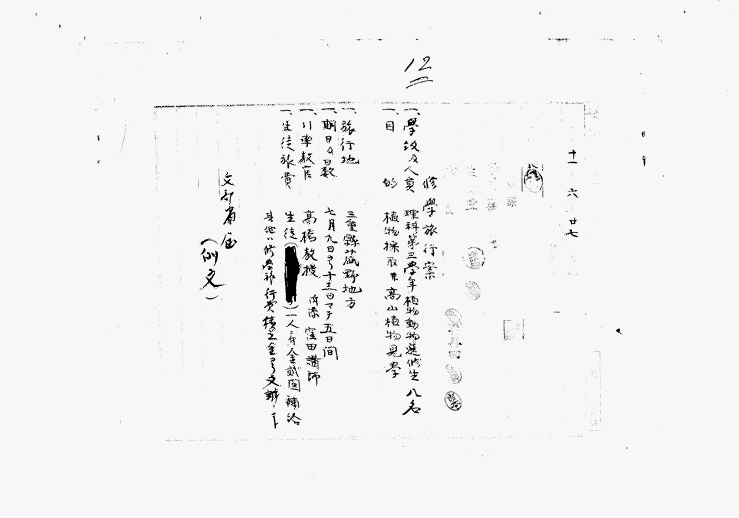 12
十一、六、廿七
修學旅行案
一、學級及人員 理科第三學年植物動物選修生 八名
一、目的 植物採取並高山植物見學
一、旅行地 三重縣菰野地方
一、期日及日數 七月九日ヨリ十三日マデ五日間
一、引率教官 高橋教授 窪田講師
一、生徒旅費 生徒 一人ニ付金貳圓補給
其他ハ修學旅行費積立金ヨリ支辨
文部省宛
(例文)